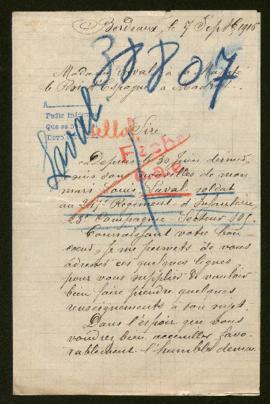 Bordeaux, le 7 Sept 1916
38807
Laval
Madame Laval à Sa Majesté
le Roi d'Espagne à Madrid
Pedir
Que se
Sire,
Fiche
faite
Depuis le 30 Juin dernier
suis sans nouvelles de mon
mari Louis Laval soldat
au Régiment d'Infanterie
28e Compagnie Secteur
Connaissant votre bon
coeur, je me permets de vous
adresser ces quelques lignes
pour vous supplier de vouloir
bien faire prendre quelques
renseignements à son sujet.
Dans l'espoir que vous
voudrez bien accueillir favo-
rablement l'humble deman